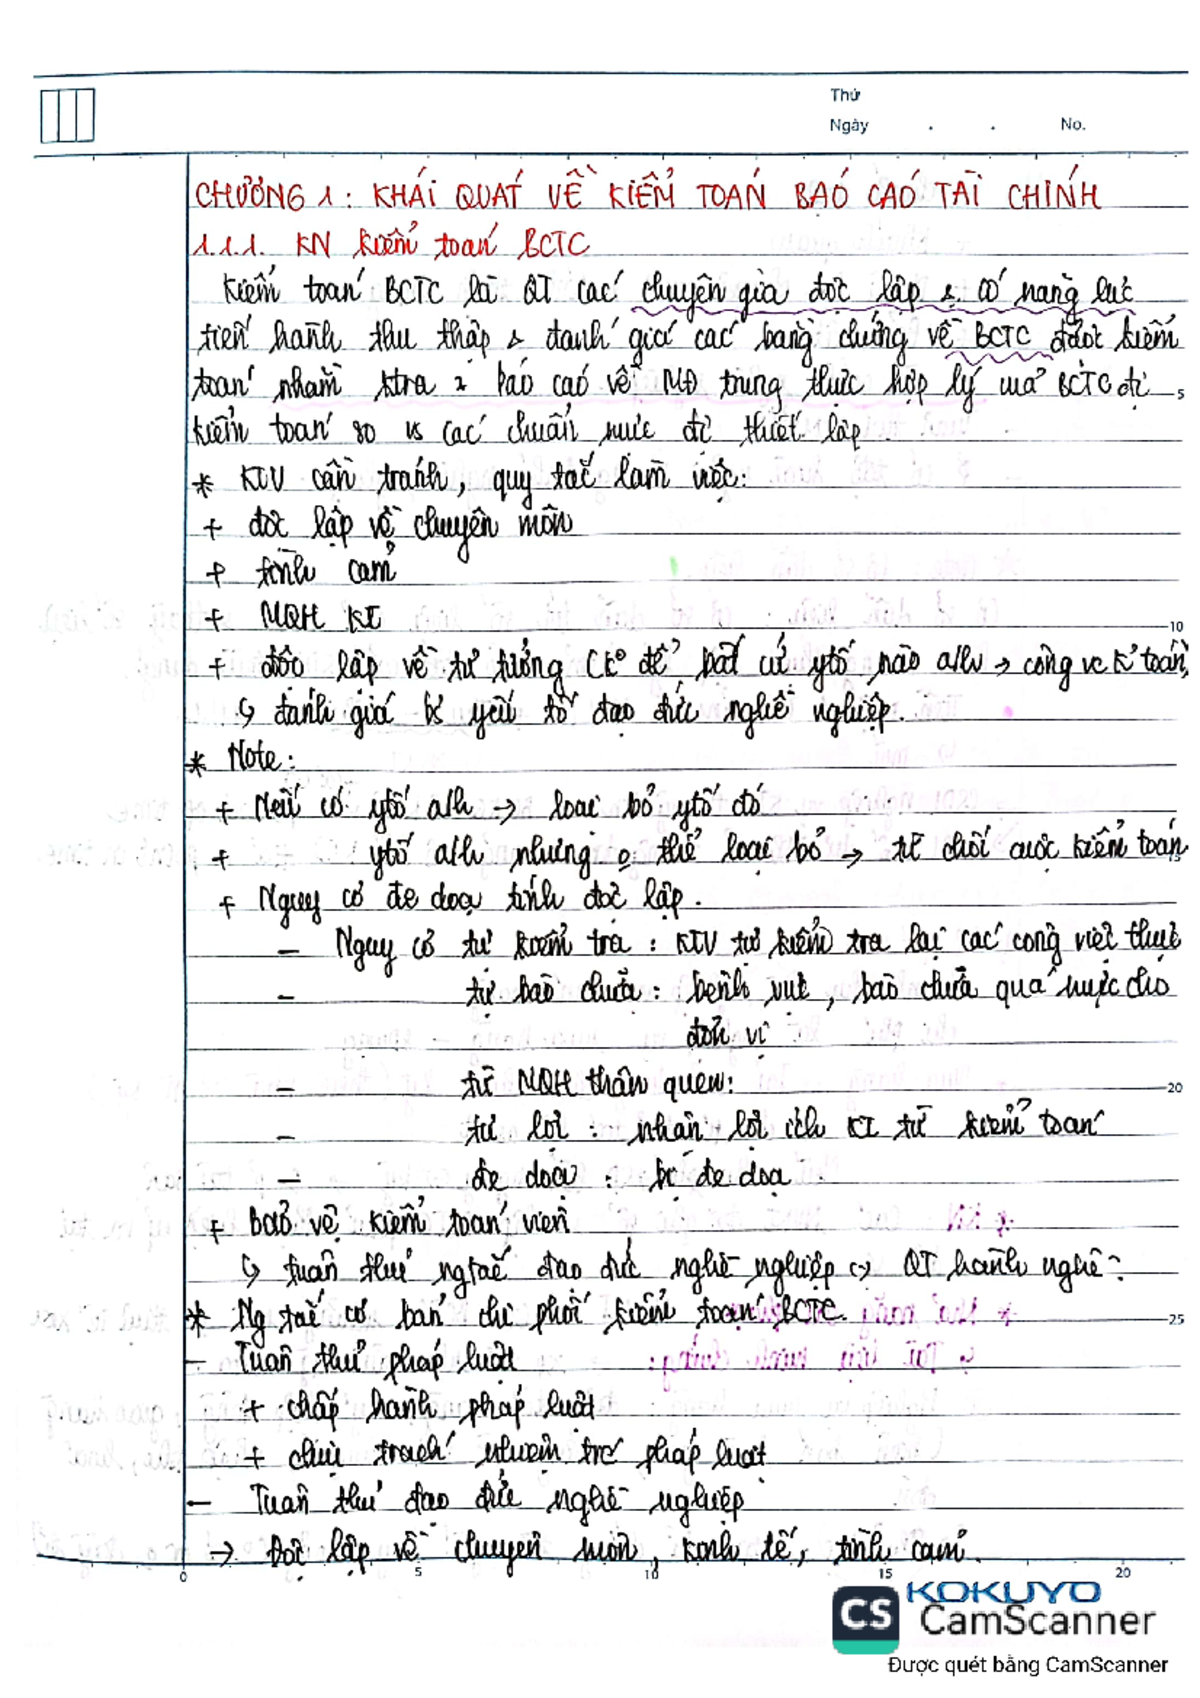 Thứ
Ngày . . No.
CHƯƠNG 1: KHÁI QUÁT VỀ KIỂM TOÁN BÁO CÁO TÀI CHÍNH
1.1.1. KN kiểm toán BCTC
Kiểm toán BCTC là QT các chuyên gia độc lập & có năng lực
tiến hành thu thập & đánh giá các bằng chứng về BCTC được kiểm
toán nhằm ktra & báo cáo về MĐ trung thực hợp lý của BCTC đc
kiểm toán so vs các chuẩn mực đc thiết lập
* KTV cần tránh, quy tắc làm việc:
+ độc lập về chuyên môn
+ tình cảm
+ MQH KT
+ độc lập về tư tưởng để bất cứ ytố nào ah → công vc K toán
↳ đánh giá bs yếu tố đạo đức nghề nghiệp.
* Note:
+ Nếu có ytố ah → loại bỏ ytố đó
+ ytố ah nhưng o thể loại bỏ → từ chối cuộc kiểm toán
+ Nguy cơ đe doạ tính độc lập.
– Nguy cơ tự kiểm tra: KTV tự kiểm tra lại các công việc thực
– tự bào chữa: bênh vực, bào chữa quá mức cho
đơn vị
– từ MQH thân quen:
– tư lợi: nhận lợi ích KT từ kiểm toán
– đe doạ: bị đe doạ
+ Bảo vệ kiểm toán viên
↳ tuân thủ ngtắc đạo đức nghề nghiệp ↔ QT hành nghề.
* Ng tắc cơ bản chi phối kiểm toán BCTC.
– Tuân thủ pháp luật
+ chấp hành pháp luật
+ chịu trách nhiệm trc pháp luật
– Tuân thủ đạo đức nghề nghiệp
→ Độc lập về chuyên môn, kinh tế, tình cảm.
5
10
20
25
0 5 10 15 20
KOKUYO
CS CamScanner
Được quét bằng CamScanner